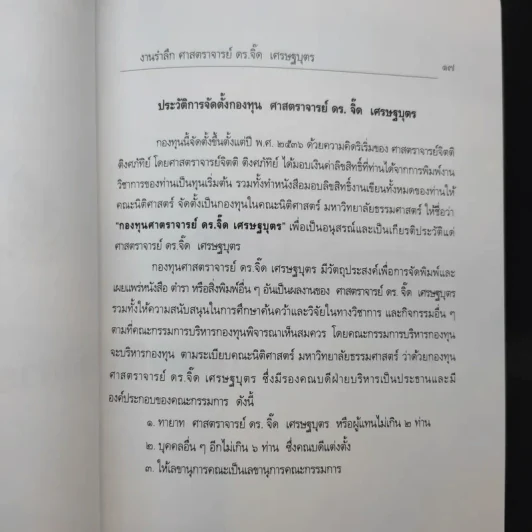 งานรำลึก ศาสตราจารย์ ดร.จี๊ด เศรษฐบุตร
๑๗
ประวัติการจัดตั้งกองทุน ศาสตราจารย์ ดร. จี๊ด เศรษฐบุตร
กองทุนนี้จัดตั้งขึ้นตั้งแต่ปี พ.ศ. ๒๕๓๖ ด้วยความคิดริเริ่มของ ศาสตราจารย์จิตติ
ติงศภัทิย์ โดยศาสตราจารย์จิตติ ติงศภัทิย์ ได้มอบเงินค่าลิขสิทธิ์ที่ท่านได้จากการพิมพ์งาน
วิชาการของท่านเป็นทุนเริ่มต้น รวมทั้งทำหนังสือมอบลิขสิทธิ์งานเขียนทั้งหมดของท่านให้
คณะนิติศาสตร์ จัดตั้งเป็นกองทุนในคณะนิติศาสตร์ มหาวิทยาลัยธรรมศาสตร์ ให้ชื่อว่า
"กองทุนศาตราจารย์ ดร.จี๊ด เศรษฐบุตร" เพื่อเป็นอนุสรณ์และเป็นเกียรติประวัติแด่
ศาสตราจารย์ ดร.จี๊ด เศรษฐบุตร
กองทุนศาสตราจารย์ ดร.จี๊ด เศรษฐบุตร มีวัตถุประสงค์เพื่อการจัดพิมพ์และ
เผยแพร่หนังสือ ตำรา หรือสิ่งพิมพ์อื่น ๆ อันเป็นผลงานของ ศาสตราจารย์ ดร.จี๊ด เศรษฐบุตร
รวมทั้งให้ความสนับสนุนในการศึกษาค้นคว้าและวิจัยในทางวิชาการ และกิจกรรมอื่น ๆ
ตามที่คณะกรรมการบริหารกองทุนพิจารณาเห็นสมควร โดยคณะกรรมการบริหารกองทุน
จะบริหารกองทุน ตามระเบียบคณะนิติศาสตร์ มหาวิทยาลัยธรรมศาสตร์ ว่าด้วยกองทุน
ศาสตราจารย์ ดร.จี๊ด เศรษฐบุตร ซึ่งมีรองคณบดีฝ่ายบริหารเป็นประธานและมี
องค์ประกอบของคณะกรรมการ ดังนี้
๑. ทายาท ศาสตราจารย์ ดร.จี๊ด เศรษฐบุตร หรือผู้แทนไม่เกิน ๒ ท่าน
๒. บุคคลอื่น ๆ อีกไม่เกิน ๖ ท่าน ซึ่งคณบดีแต่งตั้ง
๓. ให้เลขานุการคณะเป็นเลขานุการคณะกรรมการ